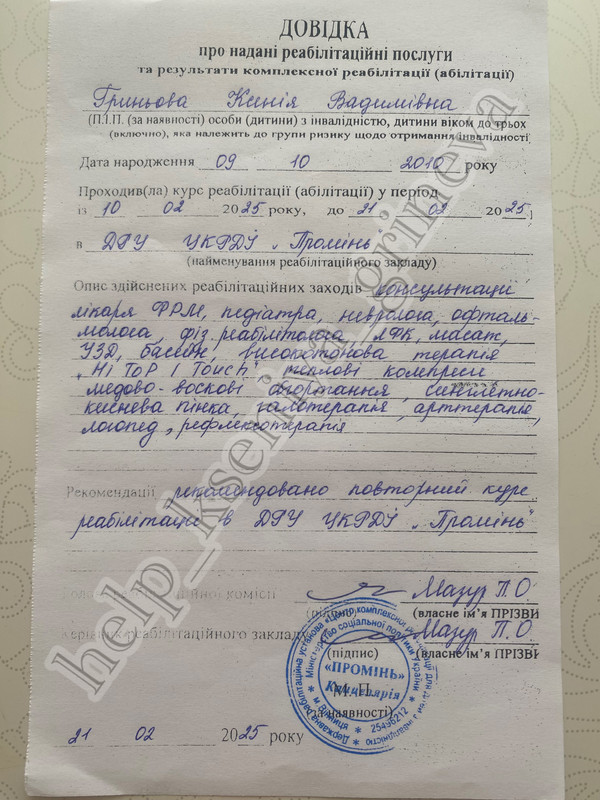 ДОВІДКА
про надані реабілітаційні послуги
та результати комплексної реабілітації (абілітації)
Гриньова Ксенія Вадимівна
(П.І.П. (за наявності) особи (дитини) з інвалідністю, дитини віком до трьох
(включно), яка належить до групи ризику щодо отримання інвалідності
Дата народження 09 10 2010 року
Проходив(ла) курс реабілітації (абілітації) у період
із 10 02 2025 року, до 21 02 2025
в ДРУ ЦКРДІ „Промінь"
(найменування реабілітаційного закладу)
Опис здійснених реабілітаційних заходів консультації
лікаря ФРМ, педіатра, невролога, офталь-
молога, фіз.реабілітолога, ЛФК, масаж,
УЗД, басейн, високотонова терапія
„Hi Top I Touch" теплові компреси
медово-воскові обгортання,
киснева пінка, галотерапія, арттерапія,
логопед, рефлексотерапія
Рекомендації рекомендовано повторний курс
реабілітації в ДРУ ЦКРДІ „Промінь"
комісії Мазур П.О.
(підпис) (власне ім'я ПРІЗВИ
Керівник реабілітаційного закладу Мазур П.О.
(підпис) (власне ім'я ПРІЗВИ
М.П.
(за наявності)
21 02 2025 року
Міністерство соціальної політики України
«ПРОМІНЬ»
Канцелярія
м Вінниця * 25498212
help_kseniya_grineva